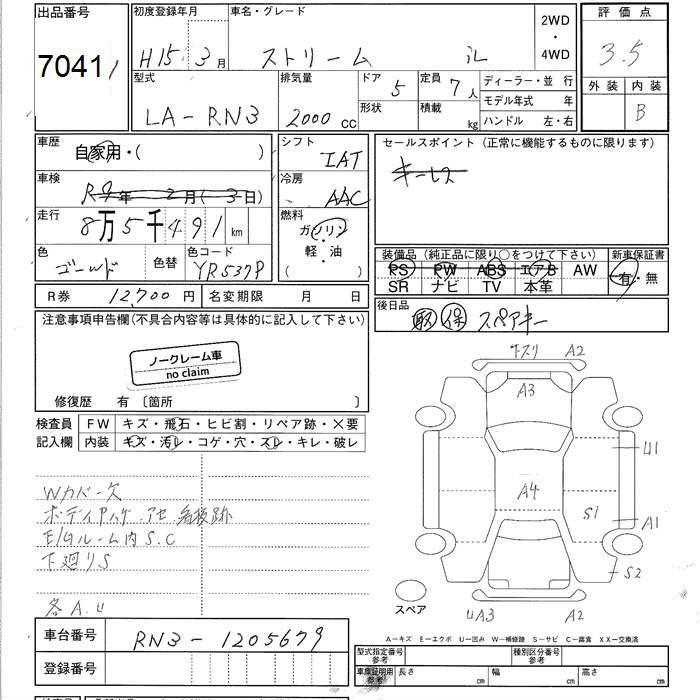 出品番号 初度登録年月 車名・グレード 2WD・4WD 評価点
7041 H15.3月 ストリーム iL 3.5
型式 排気量 ドア 5 定員 7人 ディーラー・並行 外装 内装
LA-RN3 2000cc 形状 積載 kg モデル年式 年 B
ハンドル 左・右
車歴 自家用・( ) シフト IAT セールスポイント (正常に機能するものに限ります)
車検 R9年2月(3日) 冷房 AAC キーレス
走行 8万5千491km 燃料 ガソリン 軽・油 ( )
色 ゴールド 色替 色コード YR537P
装備品 (純正品に限り○をつけて下さい) 新車保証書
PS PW ABS エアB AW 有・無
SR ナビ TV 本革
R券 12,700円 名変期限 月 日
後日品 取 保 スペアキー
注意事項申告欄(不具合内容等は具体的に記入して下さい)
ノークレーム車
no claim
修復歴 有 〔箇所 〕
検査員 FW キズ・飛石・ヒビ割・リペア跡・×要
記入欄 内装 キズ・汚レ・コゲ・穴・スレ・キレ・破レ
Wカバー欠
ボディヤケ アセ 名板跡
E/Gルーム内S.C
下廻りS
各A.U
A2
A3
U1
A4
S1
A1
S2
スペア
UA3 A2
A-キズ E-エクボ U-凹み W-補修跡 S-サビ C-腐食 XX-交換済
車台番号 RN3-1205679
登録番号
型式指定番号 参考 種別区分番号 参考
車庫証明用 参考 長さ cm 幅 cm 高さ cm